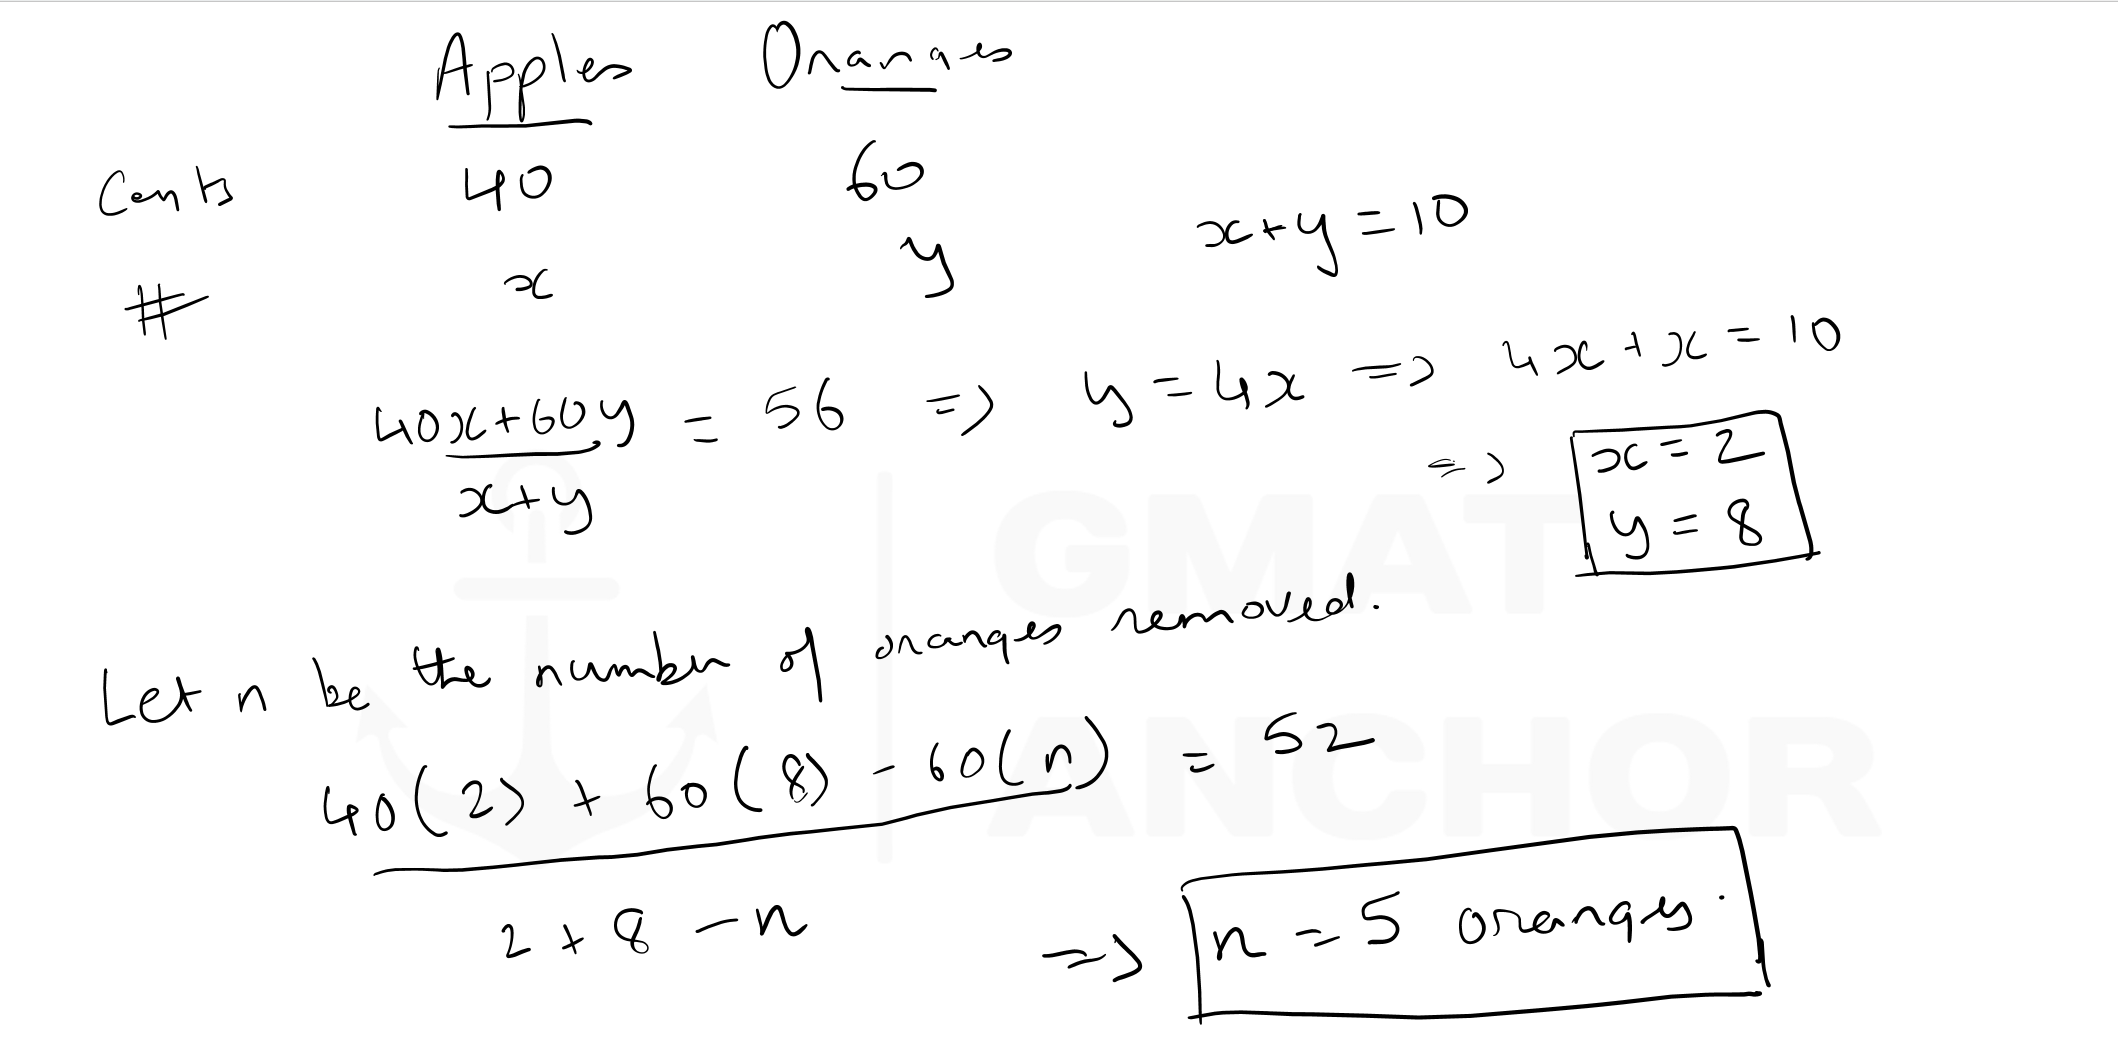 Apples Oranges
Cents 40 60
# x y x+y=10
(40x+60y)/(x+y) = 56 => y=4x => 4x+x=10
=> x=2
y=8
Let n be the number of oranges removed.
(40(2) + 60(8) - 60(n))/(2+8-n) = 52
=> n=5 oranges.
GMAT
ANCHOR